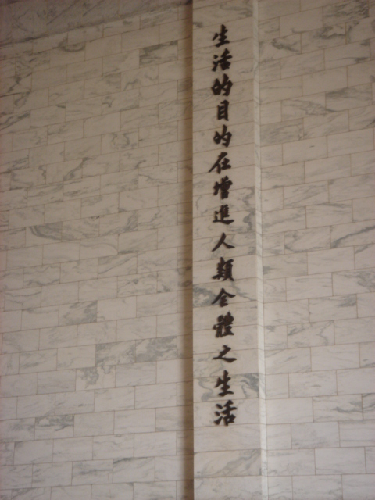 生活的目的在增進人類全體之生活